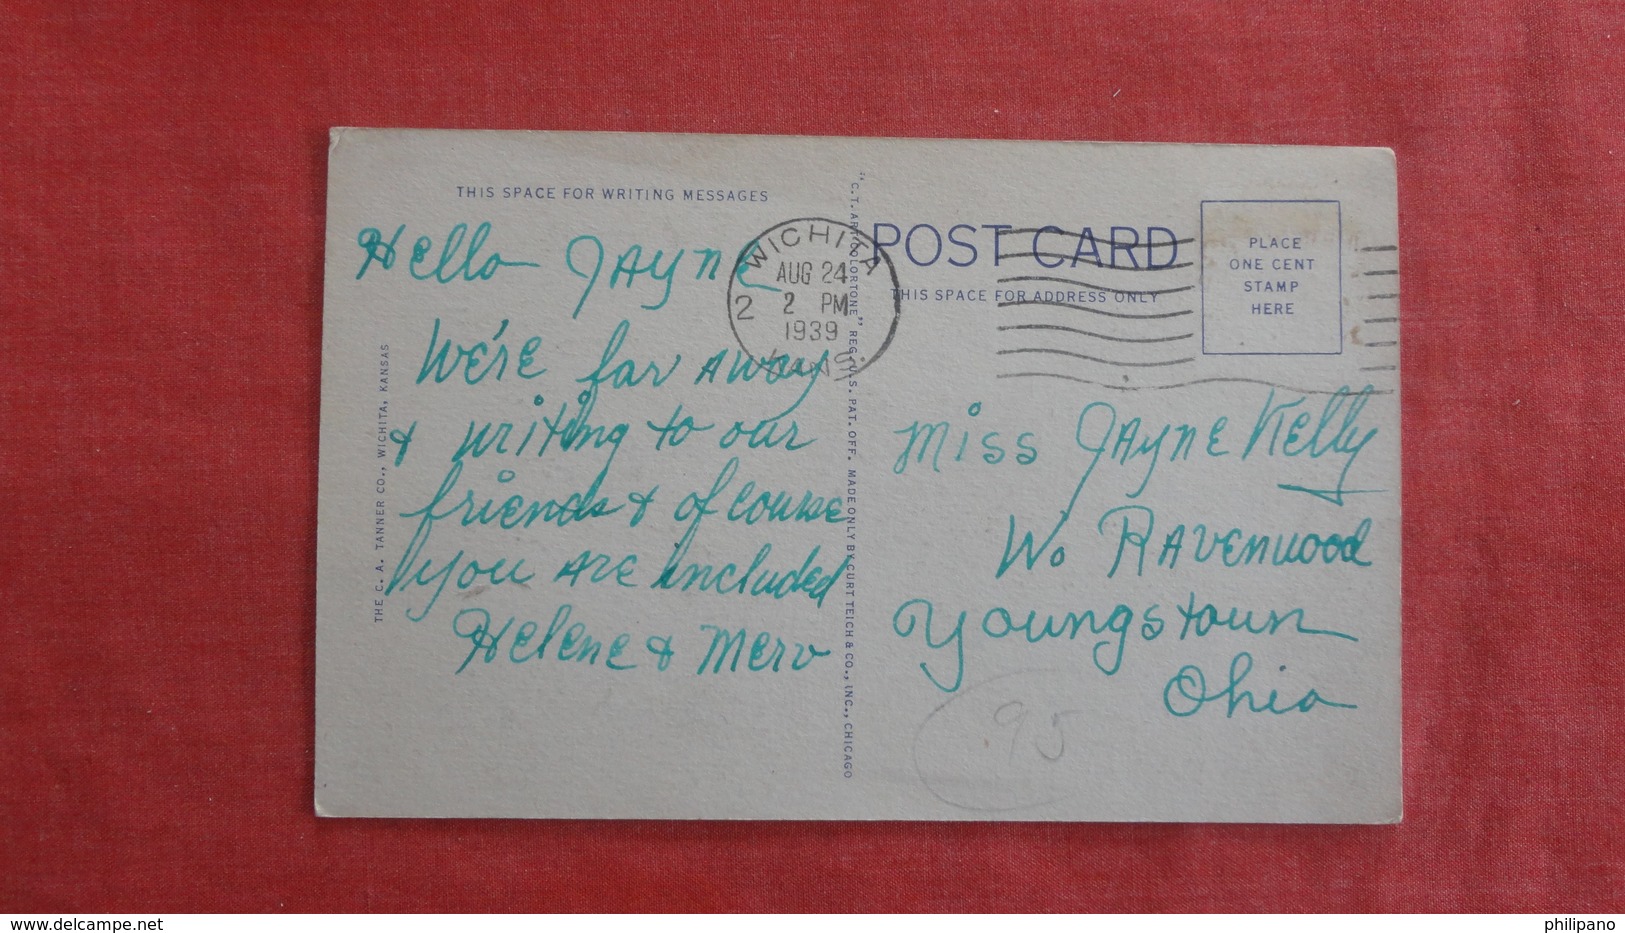 THIS SPACE FOR WRITING MESSAGES
Hello Jayne
We're far away
& writing to our
friends & of course
you are included
Helene & Merv
THE C. A. TANNER CO., WICHITA, KANSAS
"C.T. ART-COLORTONE" REG. U.S. PAT. OFF. MADE ONLY BY CURT TEICH & CO., INC., CHICAGO
WICHITA
AUG 24
2 2 PM
1939
KANS.
POST CARD
THIS SPACE FOR ADDRESS ONLY
PLACE
ONE CENT
STAMP
HERE
Miss Jayne Kelly
W. Ravenwood
Youngstown
Ohio
95
www.delcampe.net
philipano